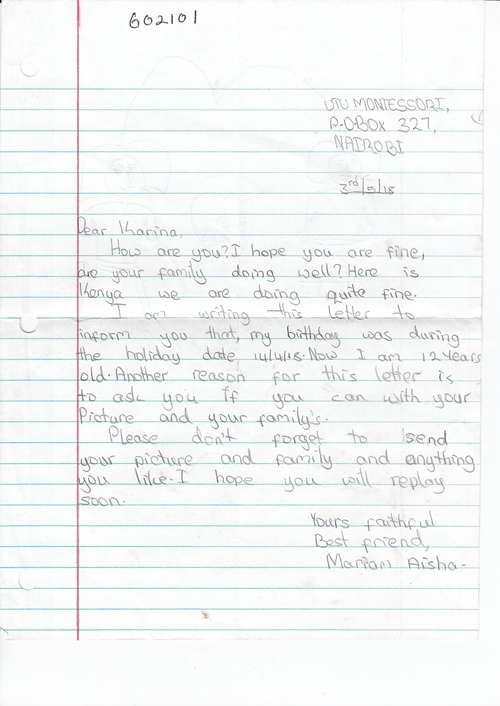 602101
UTU MONTESSORI,
P.O BOX 327,
NAIROBI
3rd/5/18
Dear Karina,
How are you? I hope you are fine,
are your family doing well? Here is
Kenya we are doing quite fine.
I am writing this letter to
inform you that, my birthday was during
the holiday date 14/4/18. Now I am 12 Years
old. Another reason for this letter is
to ask you If you can with your
Picture and your family's.
Please don't forget to send
your picture and family and anything
you like. I hope you will replay
soon.
Yours faithful
Best friend,
Mariam Aisha.